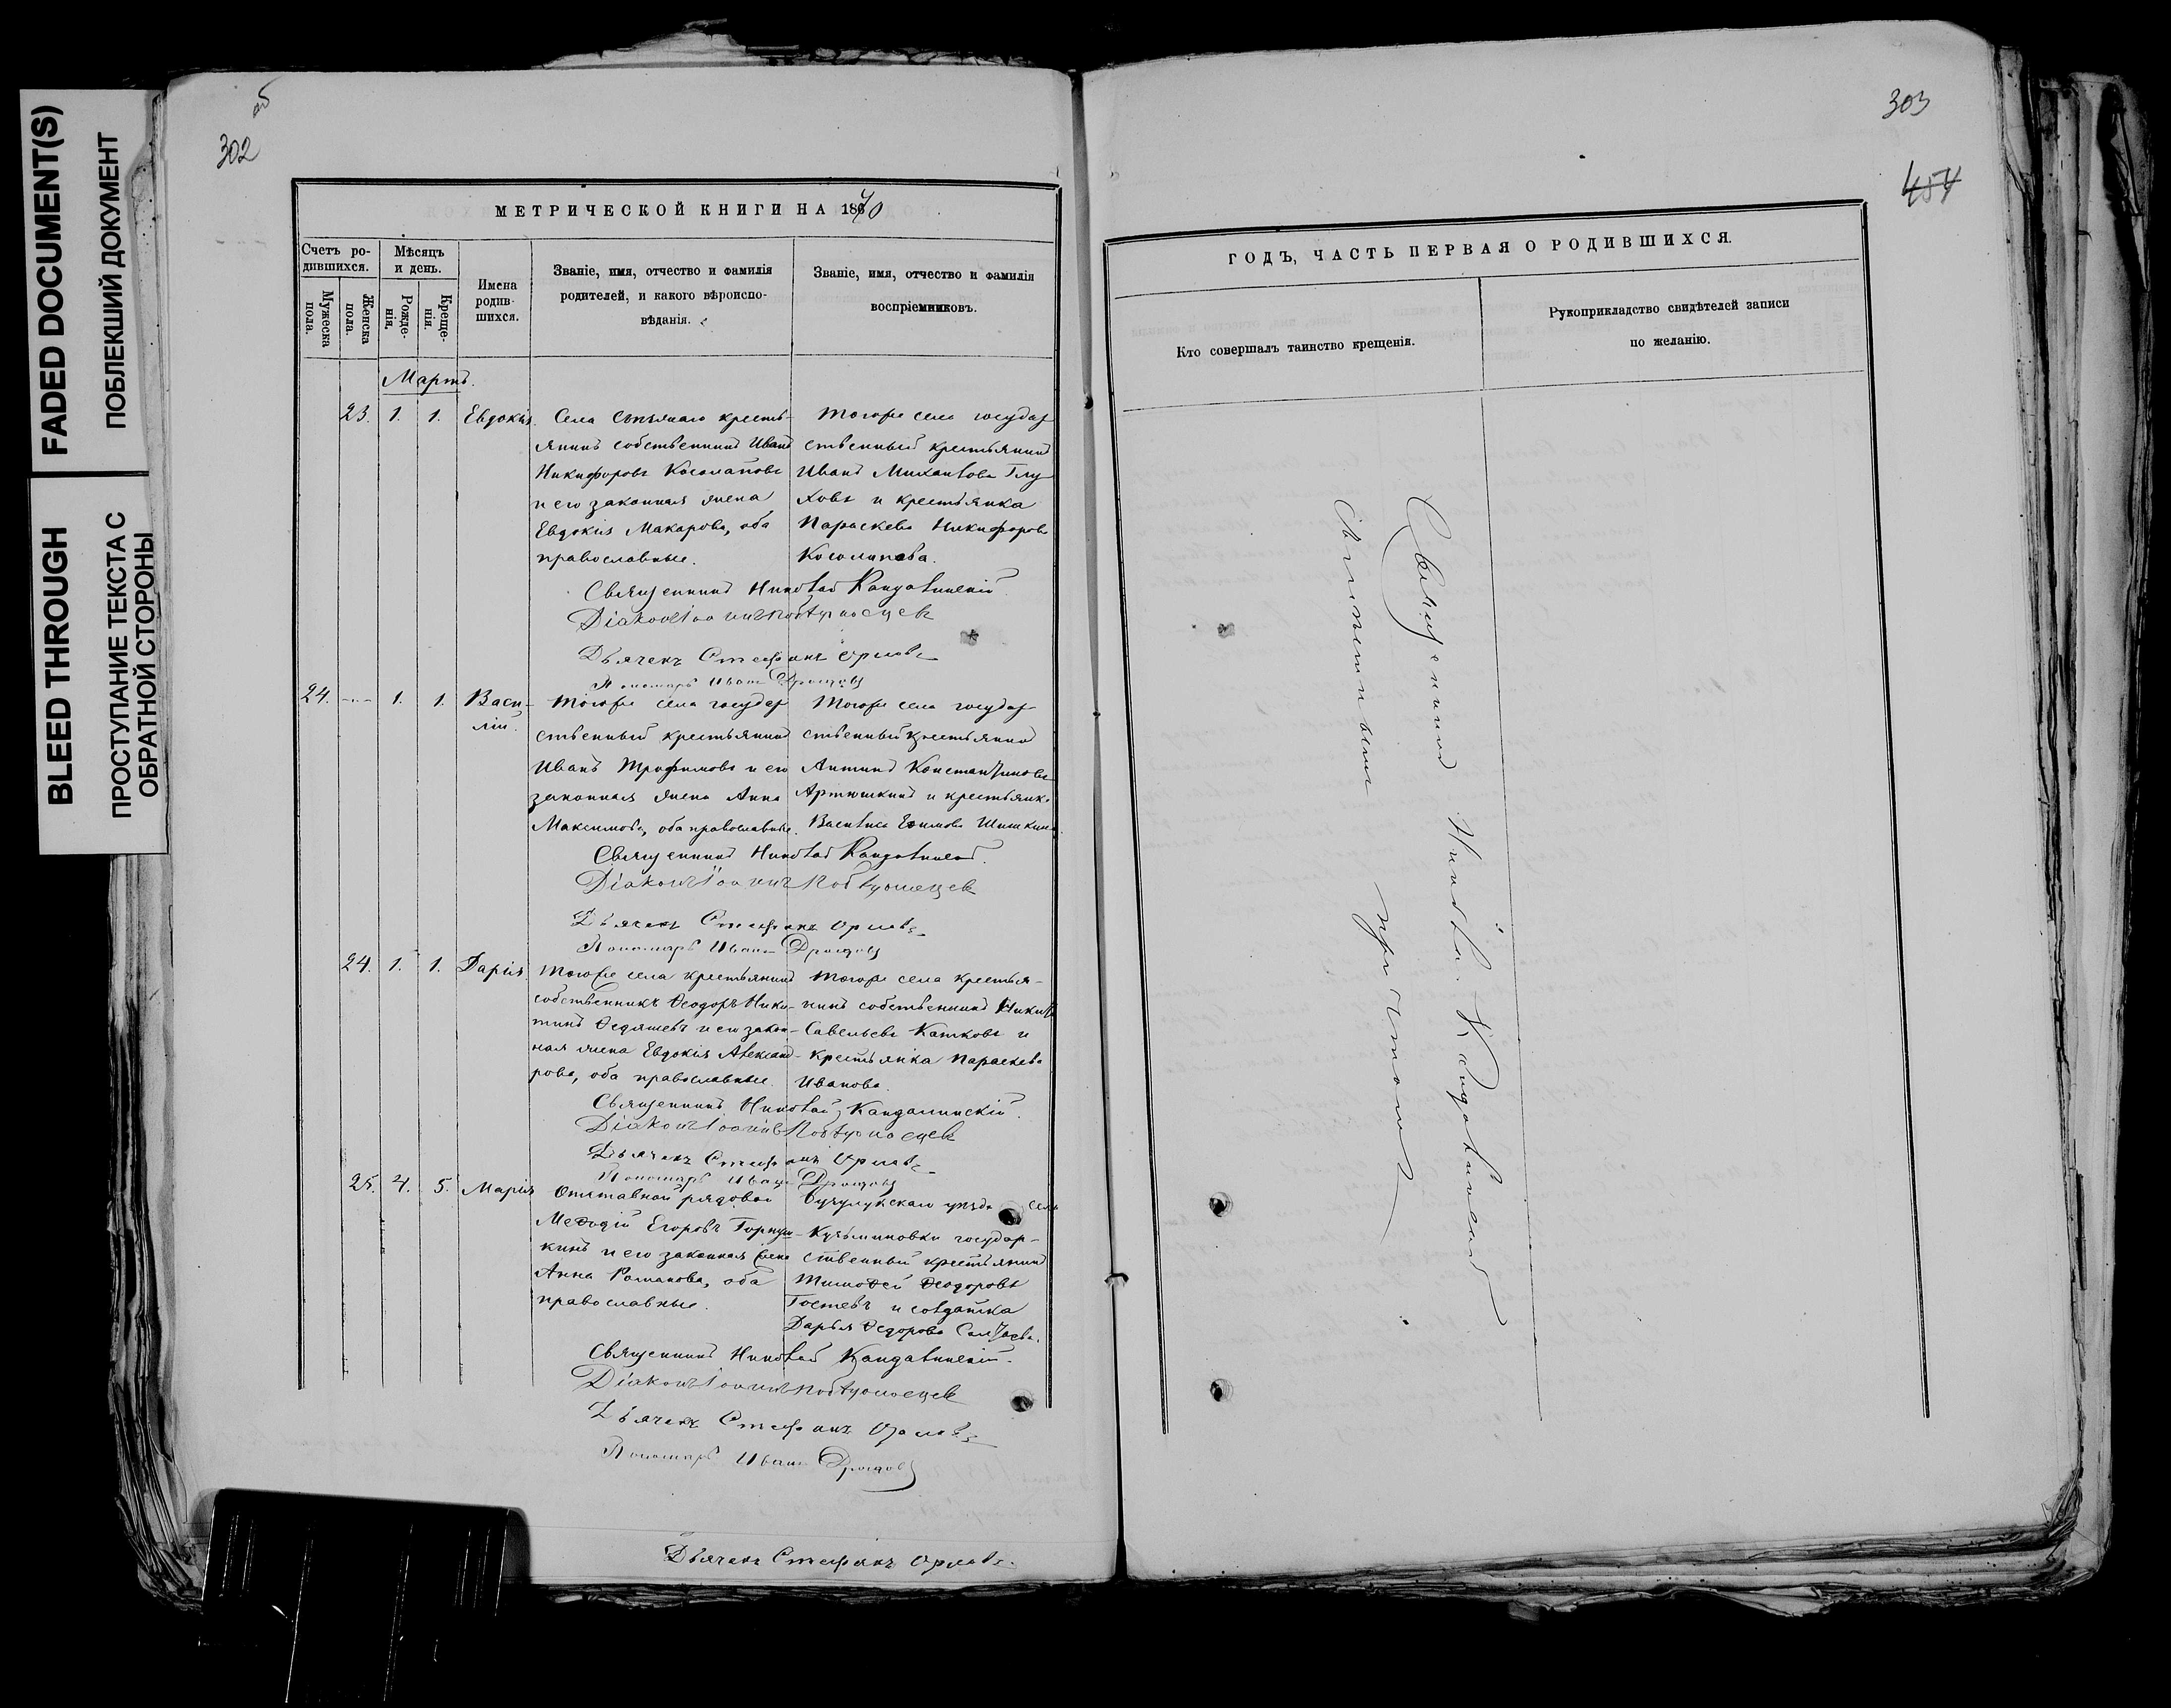 FADED DOCUMENT(S)
ПОБЛЕКШИЙ ДОКУМЕНТ
BLEED THROUGH
ПРОСТУПАНИЕ ТЕКСТА С
ОБРАТНОЙ СТОРОНЫ
об
302
МЕТРИЧЕСКОЙ КНИГИ НА 1870
Счетъ ро-
дившихся.
Мужеска
пола.
Женска
пола.
Мѣсяцъ
и день.
Рожде-
нія.
Креще-
нія.
Имена
родив-
шихся.
Званіе, имя, отчество и фамилія
родителей, и какого вѣроиспо-
вѣданія.
Званіе, имя, отчество и фамилія
воспріемниковъ.
Мартъ.
23. 1. 1. Евдокія.
Села крестья-
янинъ собственникъ Иванъ
Никифоровъ Косолаповъ
и его законная жена
Евдокія Макарова, оба
православные.
Тогоже села государ
ственный крестьянинъ
Иванъ Михайловъ Глу
ховъ и крестьянка
Параскева Никифорова
Косолапова.
Священникъ Николай Кандалинскій.
Діаконъ Іоаннъ
Дьячекъ Стефанъ Орловъ
Пономарь Иванъ Дроздовъ
24. 1. 1. Васи-
лій.
Тогоже села государ
ственный крестьянинъ
Иванъ Трофимовъ и его
законная жена Анна
Максимова, оба православные.
Тогоже села государ
ственный крестьянинъ
Антипъ Константиновъ
Артюшкинъ и крестьянка
Василиса Ефимова Шишкина.
Священникъ Николай Кандалинскій.
Діаконъ Іоаннъ
Дьячекъ Стефанъ Орловъ
Пономарь Иванъ Дроздовъ
24. 1. 1. Дарія.
Тогоже села крестьянинъ
собственникъ Ѳеодоръ Ники-
тинъ Ѳедяшевъ и его закон-
ная жена Евдокія Александ-
рова, оба православные.
Тогоже села крестья-
нинъ собственникъ Никита
Савельевъ Катковъ и
крестьянка Параскева
Иванова.
Священникъ Николай Кандалинскій.
Діаконъ Іоаннъ
Дьячекъ Стефанъ Орловъ
Пономарь Иванъ Дроздовъ
25. 4. 5. Марія
Отставной рядовой
Меѳодій Егоровъ Горнуш-
кинъ и его законная жена
Анна Романова, оба
православные.
Бузулукскаго уѣзда села
Кузьминовки государ-
ственный крестьянинъ
Тимоѳей Ѳеодоровъ
Гостевъ и солдатка
Дарья Ѳедорова
Священникъ Николай Кандалинскій.
Діаконъ Іоаннъ
Дьячекъ Стефанъ Орловъ
Пономарь Иванъ Дроздовъ
Дьячекъ Стефанъ Орловъ.
303
454
ГОДЪ, ЧАСТЬ ПЕРВАЯ О РОДИВШИХСЯ.
Кто совершалъ таинство крещенія.
Рукоприкладство свидѣтелей записи
по желанію.
Священникъ Николай Кандалинскій
причтомъ